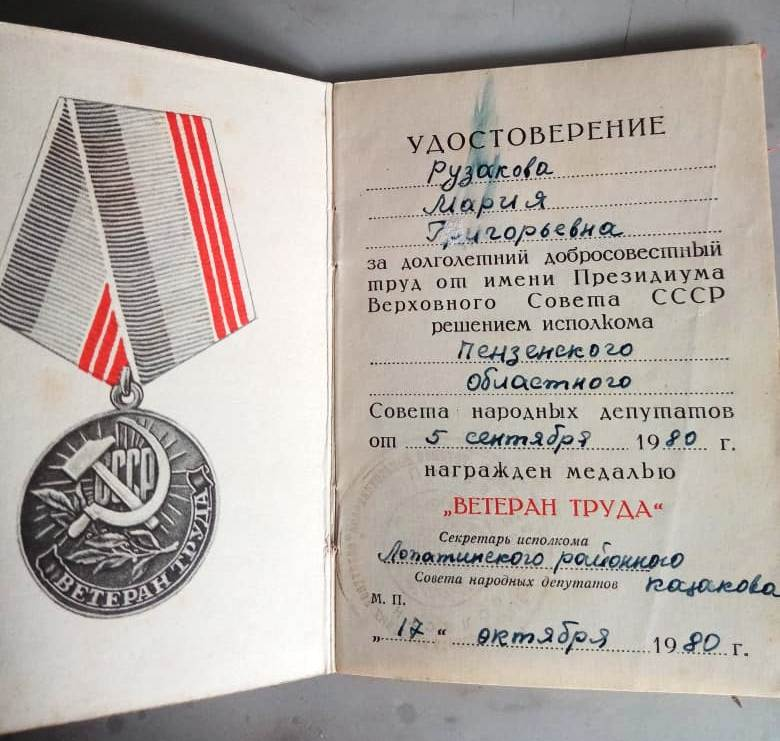 СССР
ВЕТЕРАН ТРУДА
УДОСТОВЕРЕНИЕ
Рузакова
Мария
Григорьевна
за долголетний добросовестный
труд от имени Президиума
Верховного Совета СССР
решением исполкома
Пензенского
областного
Совета народных депутатов
от 5 сентября 1980 г.
награжден медалью
„ВЕТЕРАН ТРУДА“
Секретарь исполкома
Лопатинского районного
Совета народных депутатов Казакова
М. П.
„17“ октября 1980 г.